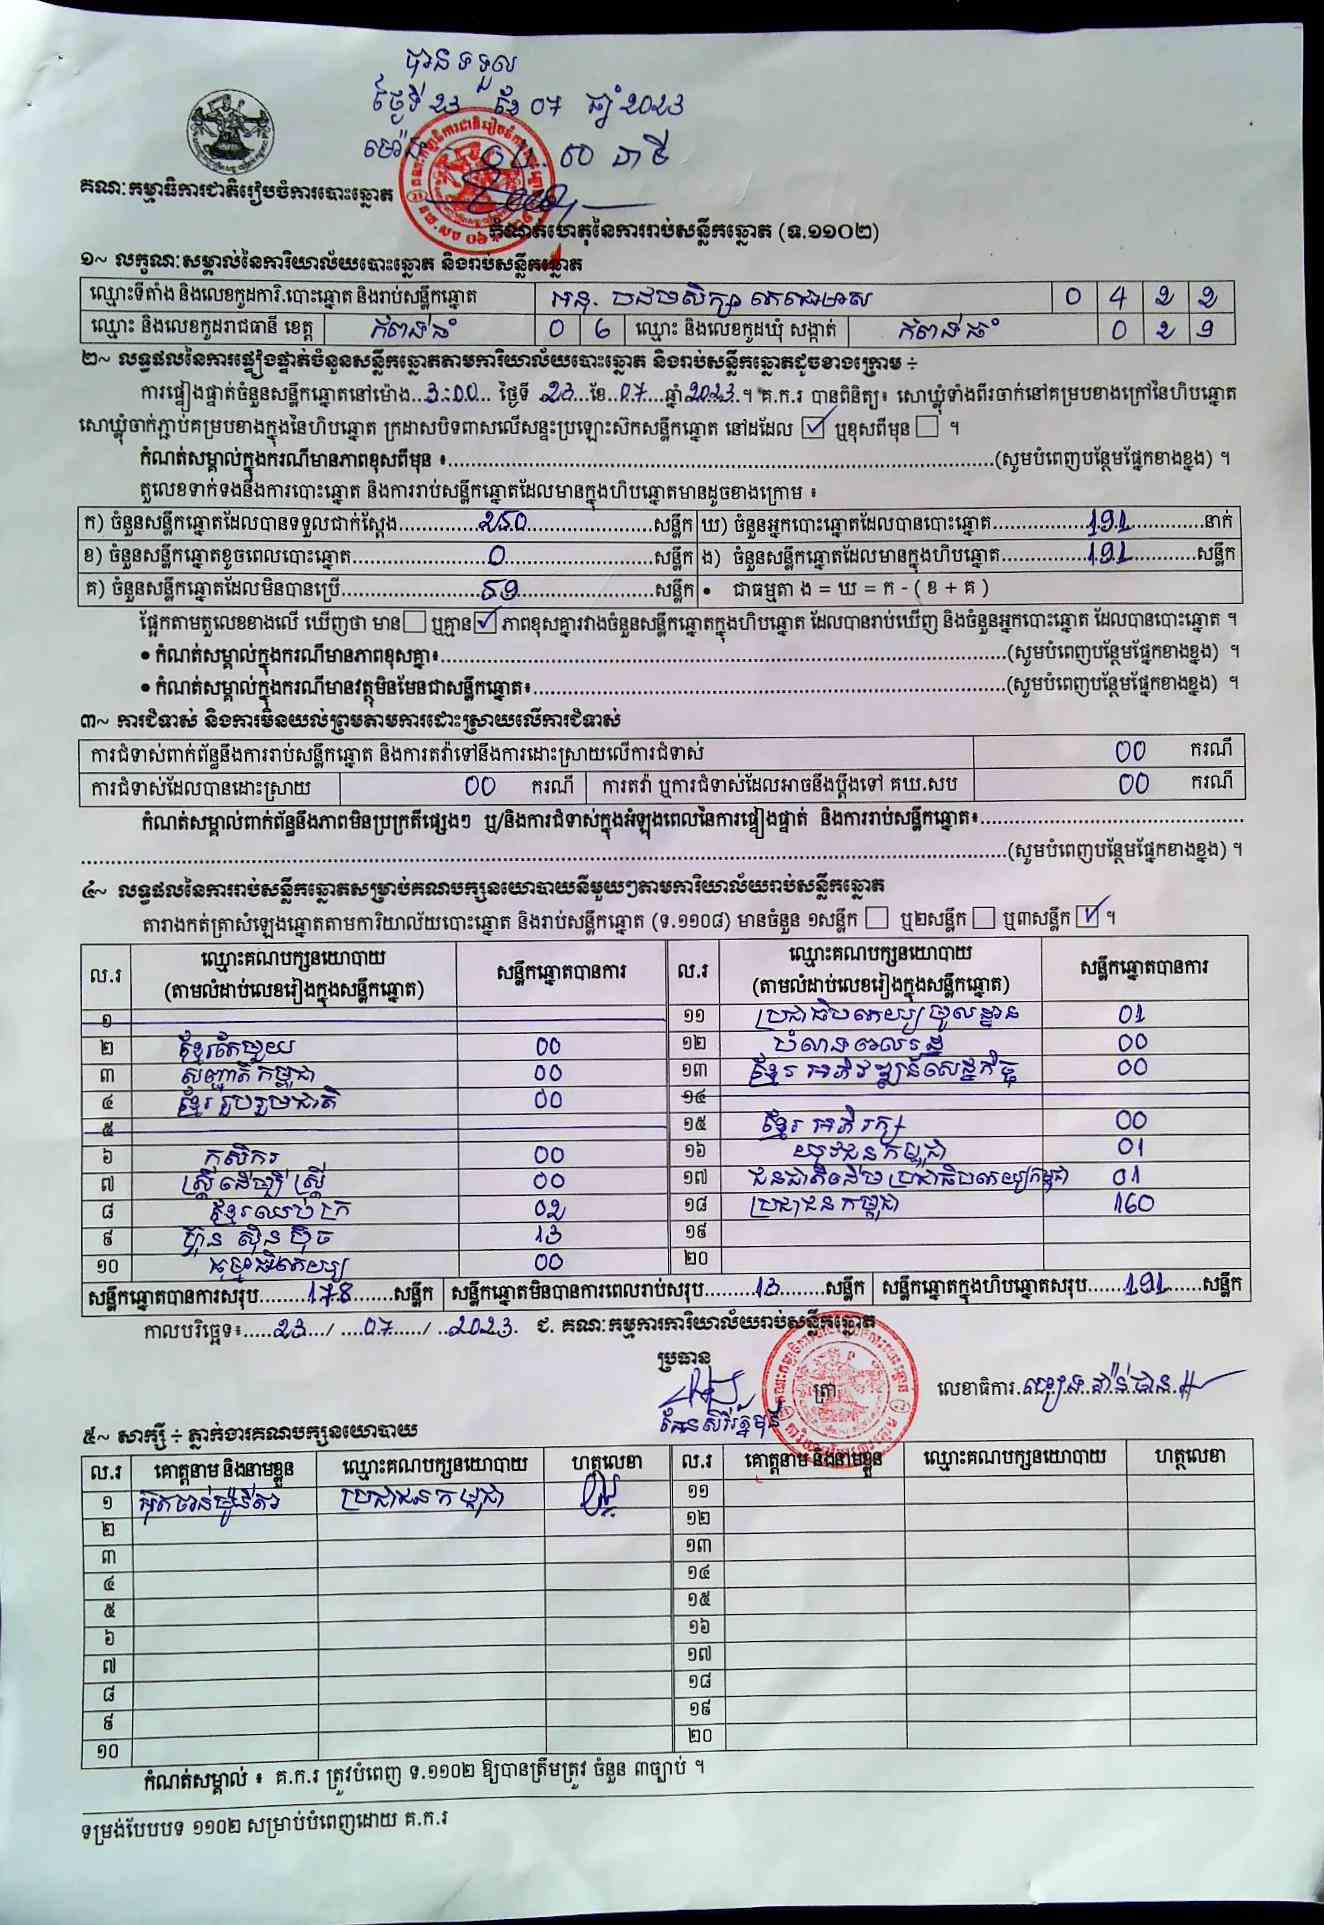 បានទទួល
ថ្ងៃទី 23 ខែ 07 ឆ្នាំ 2023
ម៉ោង នាទី
គណៈកម្មាធិការជាតិរៀបចំការបោះឆ្នោត
កំណត់ហេតុនៃការរាប់សន្លឹកឆ្នោត (ទ.១១០២)
១~ លក្ខណៈសម្គាល់នៃការិយាល័យបោះឆ្នោត និងរាប់សន្លឹកឆ្នោត
ឈ្មោះទីតាំង និងលេខកូដការិ.បោះឆ្នោត និងរាប់សន្លឹកឆ្នោត អនុ. 0 4 2 2
ឈ្មោះ និងលេខកូដរាជធានី ខេត្ត កំពង់ធំ 0 6 ឈ្មោះ និងលេខកូដឃុំ សង្កាត់ កំពង់ធំ 0 2 9
២~ លទ្ធផលនៃការផ្ទៀងផ្ទាត់ចំនួនសន្លឹកឆ្នោតតាមការិយាល័យបោះឆ្នោត និងរាប់សន្លឹកឆ្នោតដូចខាងក្រោម ÷
ការផ្ទៀងផ្ទាត់ចំនួនសន្លឹកឆ្នោតនៅម៉ោង..3:00.. ថ្ងៃទី 23 ខែ..07...ឆ្នាំ 2023.។ គ.ក.រ បានពិនិត្យ៖ សោឃ្លុំទាំងពីរចាក់នៅគម្របខាងក្រៅនៃហិបឆ្នោត
សោឃ្លុំចាក់ភ្ជាប់គម្របខាងក្នុងនៃហិបឆ្នោត ក្រដាសបិទពាសលើសន្ទះប្រឡោះស៊កសន្លឹកឆ្នោត នៅដដែល ☑ ឬខុសពីមុន ☐ ។
កំណត់សម្គាល់ក្នុងករណីមានភាពខុសពីមុន ៖..........(សូមបំពេញបន្ថែមផ្នែកខាងខ្នង) ។
តួលេខទាក់ទងនឹងការបោះឆ្នោត និងការរាប់សន្លឹកឆ្នោតដែលមានក្នុងហិបឆ្នោតមានដូចខាងក្រោម ៖
ក) ចំនួនសន្លឹកឆ្នោតដែលបានទទួលជាក់ស្តែង.....250.....សន្លឹក ឃ) ចំនួនអ្នកបោះឆ្នោតដែលបានបោះឆ្នោត.....191.....នាក់
ខ) ចំនួនសន្លឹកឆ្នោតខូចពេលបោះឆ្នោត.....0.....សន្លឹក ង) ចំនួនសន្លឹកឆ្នោតដែលមានក្នុងហិបឆ្នោត.....191.....សន្លឹក
គ) ចំនួនសន្លឹកឆ្នោតដែលមិនបានប្រើ.....59.....សន្លឹក • ជាធម្មតា ង = ឃ = ក - ( ខ + គ )
ផ្អែកតាមតួលេខខាងលើ ឃើញថា មាន ☐ ឬគ្មាន ☑ ភាពខុសគ្នារវាងចំនួនសន្លឹកឆ្នោតក្នុងហិបឆ្នោត ដែលបានរាប់ឃើញ និងចំនួនអ្នកបោះឆ្នោត ដែលបានបោះឆ្នោត ។
• កំណត់សម្គាល់ក្នុងករណីមានភាពខុសគ្នា៖..........(សូមបំពេញបន្ថែមផ្នែកខាងខ្នង) ។
• កំណត់សម្គាល់ក្នុងករណីមានវត្ថុមិនមែនជាសន្លឹកឆ្នោត៖..........(សូមបំពេញបន្ថែមផ្នែកខាងខ្នង) ។
៣~ ការជំទាស់ និងការមិនយល់ព្រមតាមការដោះស្រាយលើការជំទាស់
ការជំទាស់ពាក់ព័ន្ធនឹងការរាប់សន្លឹកឆ្នោត និងការតវ៉ាទៅនឹងការដោះស្រាយលើការជំទាស់ 00 ករណី
ការជំទាស់ដែលបានដោះស្រាយ 00 ករណី ការតវ៉ា ឬការជំទាស់ដែលអាចនឹងប្តឹងទៅ គឃ.សប 00 ករណី
កំណត់សម្គាល់ពាក់ព័ន្ធនឹងភាពមិនប្រក្រតីផ្សេងៗ ឬ/និងការជំទាស់ក្នុងអំឡុងពេលនៃការផ្ទៀងផ្ទាត់ និងការរាប់សន្លឹកឆ្នោត៖..........
..........(សូមបំពេញបន្ថែមផ្នែកខាងខ្នង) ។
៤~ លទ្ធផលនៃការរាប់សន្លឹកឆ្នោតសម្រាប់គណបក្សនយោបាយនីមួយៗតាមការិយាល័យរាប់សន្លឹកឆ្នោត
តារាងកត់ត្រាសំឡេងឆ្នោតតាមការិយាល័យបោះឆ្នោត និងរាប់សន្លឹកឆ្នោត (ទ.១១០៨) មានចំនួន ១សន្លឹក ☐ ឬ២សន្លឹក ☐ ឬ៣សន្លឹក ☑ ។
ល.រ ឈ្មោះគណបក្សនយោបាយ (តាមលំដាប់លេខរៀងក្នុងសន្លឹកឆ្នោត) សន្លឹកឆ្នោតបានការ ល.រ ឈ្មោះគណបក្សនយោបាយ (តាមលំដាប់លេខរៀងក្នុងសន្លឹកឆ្នោត) សន្លឹកឆ្នោតបានការ
១ ១១ ប្រជាធិបតេយ្យមូលដ្ឋាន 01
២ ខ្មែរតែមួយ 00 ១២ បំលាស់ប្តូរ 00
៣ សញ្ជាតិកម្ពុជា 00 ១៣ ខ្មែរអភិវឌ្ឍន៍សេដ្ឋកិច្ច 00
៤ ខ្មែររួបរួមជាតិ 00 ១៤
៥ ១៥ ខ្មែរអភិរក្ស 00
៦ កសិករ 00 ១៦ យុវជនកម្ពុជា 01
៧ ស្ត្រីដើម្បីស្ត្រី 00 ១៧ ជនជាតិដើមប្រជាធិបតេយ្យកម្ពុជា 01
៨ ខ្មែរឈប់ក្រ 02 ១៨ ប្រជាជនកម្ពុជា 160
៩ ហ៊្វុនស៊ិនប៉ិច 13 ១៩
១០ ធម្មាធិបតេយ្យ 00 ២០
សន្លឹកឆ្នោតបានការសរុប.....178.....សន្លឹក សន្លឹកឆ្នោតមិនបានការពេលរាប់សរុប.....13.....សន្លឹក សន្លឹកឆ្នោតក្នុងហិបឆ្នោតសរុប.....191.....សន្លឹក
កាលបរិច្ឆេទ៖.....23.../....07...../..2023. ជ. គណៈកម្មការការិយាល័យរាប់សន្លឹកឆ្នោត
ប្រធាន ត្រា លេខាធិការ
៥~ សាក្សី ÷ ភ្នាក់ងារគណបក្សនយោបាយ
ល.រ គោត្តនាម និងនាមខ្លួន ឈ្មោះគណបក្សនយោបាយ ហត្ថលេខា ល.រ គោត្តនាម និងនាមខ្លួន ឈ្មោះគណបក្សនយោបាយ ហត្ថលេខា
១ ប្រជាជនកម្ពុជា ១១
២ ១២
៣ ១៣
៤ ១៤
៥ ១៥
៦ ១៦
៧ ១៧
៨ ១៨
៩ ១៩
១០ ២០
កំណត់សម្គាល់ ៖ គ.ក.រ ត្រូវបំពេញ ទ.១១០២ ឱ្យបានត្រឹមត្រូវ ចំនួន ៣ច្បាប់ ។
ទម្រង់បែបបទ ១១០២ សម្រាប់បំពេញដោយ គ.ក.រ